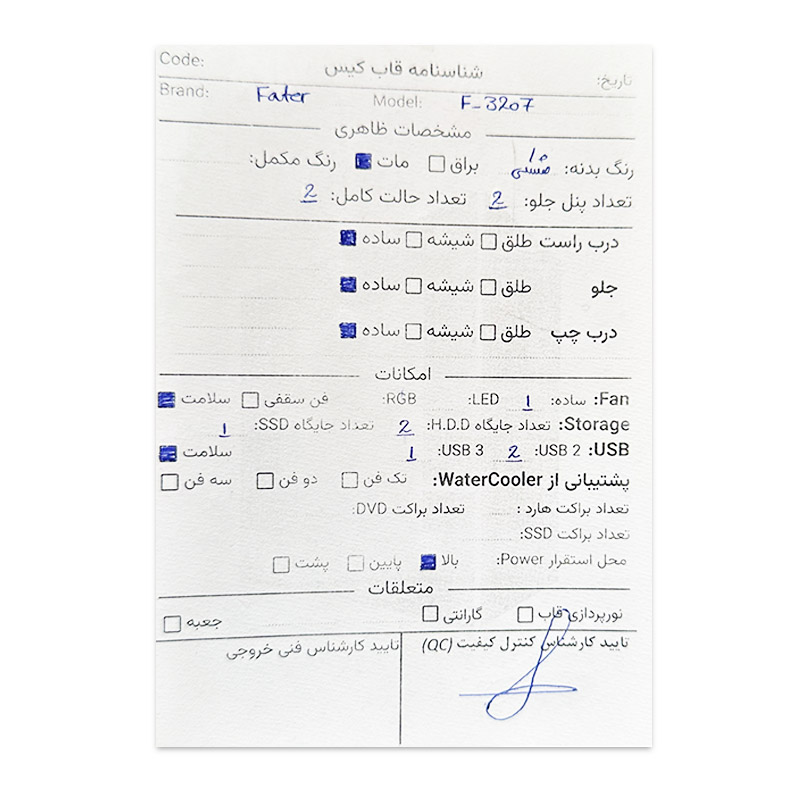 Code: شناسنامه قاب کیس تاریخ:
Brand: Fater Model: F-3207
مشخصات ظاهری
رنگ بدنه: مشکی براق مات رنگ مکمل:
تعداد پنل جلو: 2 تعداد حالت کامل: 2
درب راست طلق شیشه ساده
جلو طلق شیشه ساده
درب چپ طلق شیشه ساده
امکانات
Fan: ساده: 1 LED: RGB: فن سقفی سلامت
Storage: تعداد جایگاه H.D.D: 2 تعداد جایگاه SSD: 1
USB: USB 2: 2 USB 3: 1 سلامت
پشتیبانی از WaterCooler: تک فن دو فن سه فن
تعداد براکت هارد : تعداد براکت DVD:
تعداد براکت SSD:
محل استقرار Power: بالا پایین پشت
متعلقات
نورپردازی قاب گارانتی جعبه
تایید کارشناس کنترل کیفیت (QC) تایید کارشناس فنی خروجی